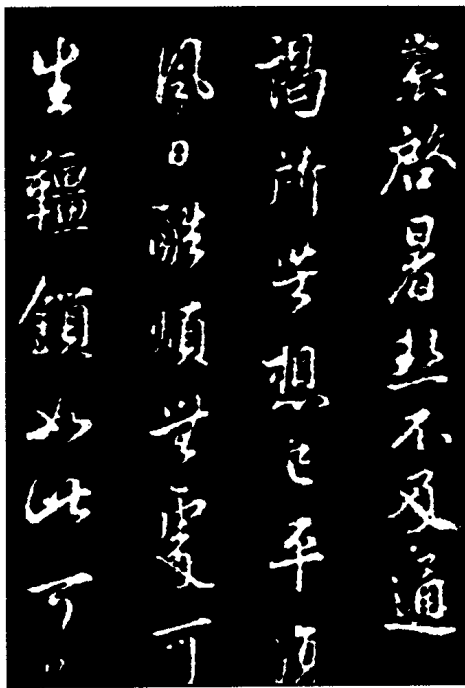 襄啓暑熱不及通
謁所苦想已平復
風日酷煩無處可
生韁鎖如此可